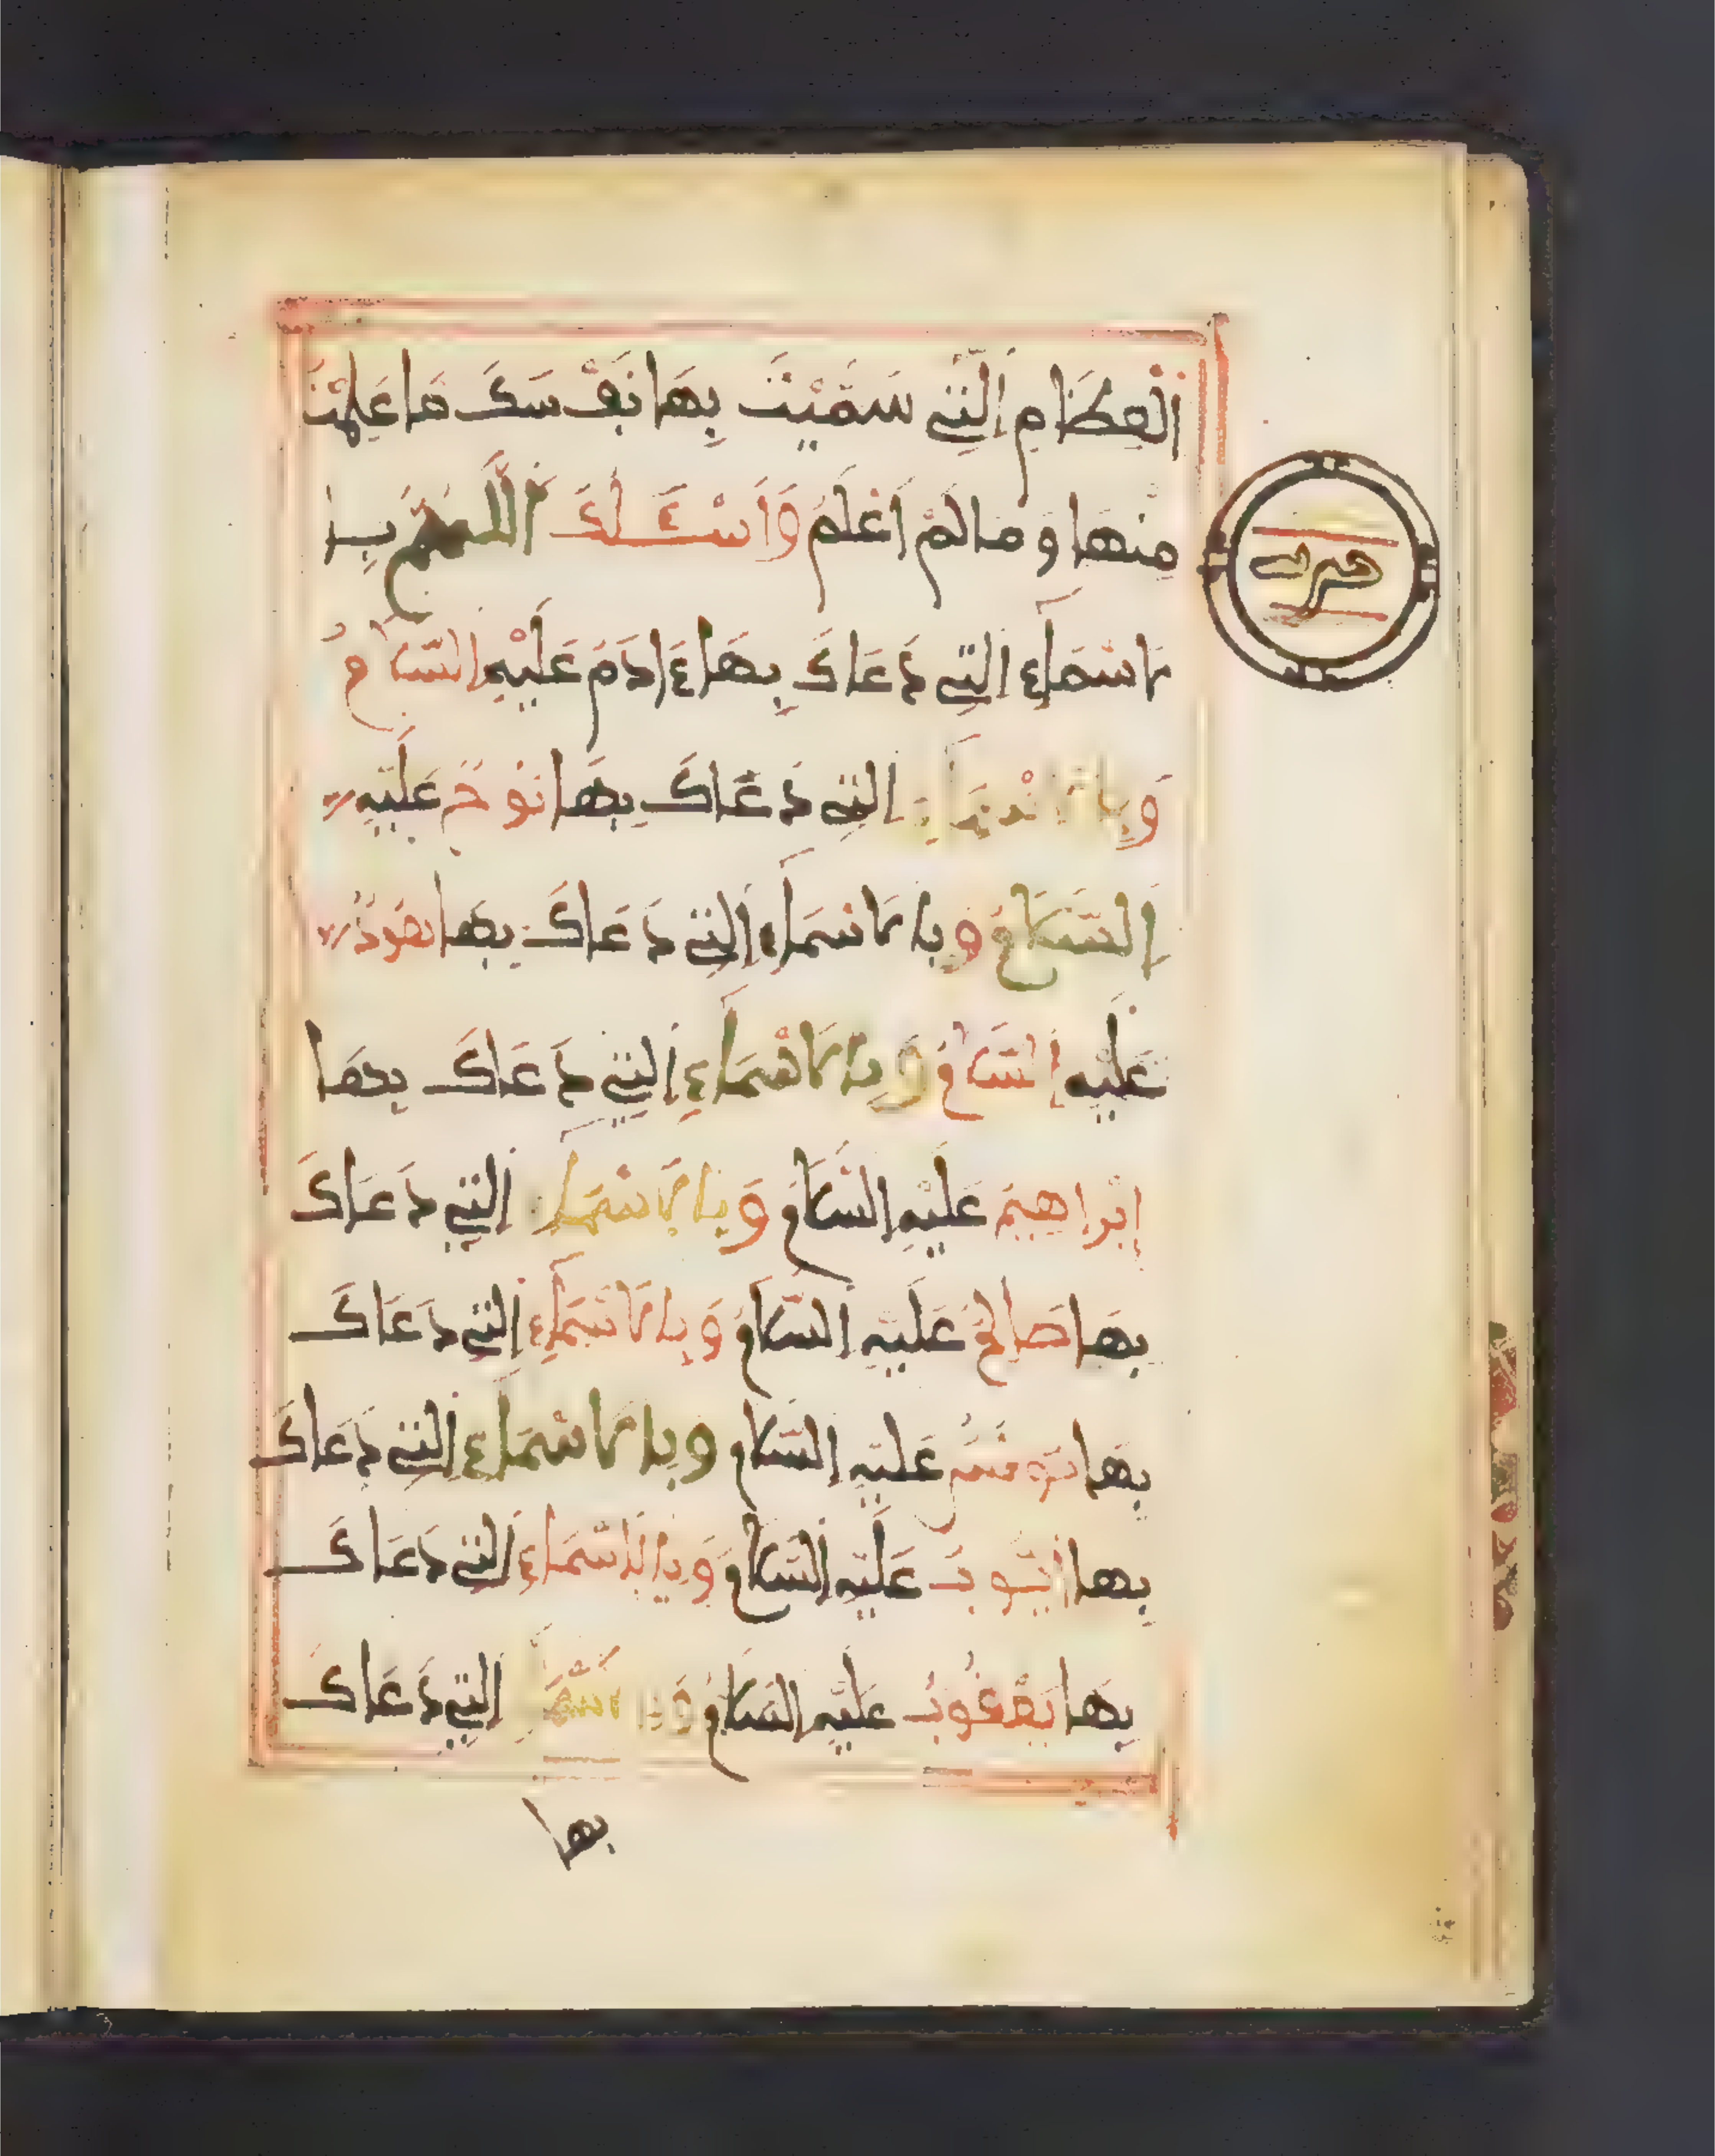 الْعِظَامِ اَلَّتِي سَمَّيْتَ بِهَا نَفْسَكَ مَا عَلِمْتُ
مِنْهَا وَمَا لَمْ أَعْلَمْ وَأَسْـَٔلُكَ اَللَّهُمَّ بِا
لَاسْمَاءِ الَّتِي دَعَاكَ بِهَا ءَادَمُ عَلَيْهِ السَّلَامُ
وَبِالَاسْمَاءِ الَّتِي دَعَاكَ بِهَا نُوحٌ عَلَيْهِ
اِلسَّلَامُ وَبِالَاسْمَاءِ اِلَّتِي دَعَاكَ بِهَا هُودٌ
عَلَيْهِ اِلسَّلَامُ وَبِالَاسْمَاءِ اِلَّتِي دَعَاكَ بِهَا
إِبْرَاهِيمُ عَلَيْهِ السَّلَامُ وَبِالَاسْمَاءِ اَلَّتِي دَعَاكَ
بِهَا صَالِحٌ عَلَيْهِ اِلسَّلَامُ وَبِالَاسْمَاءِ اِلَّتِي دَعَاكَ
بِهَا يُونُسُ عَلَيْهِ اِلسَّلَامُ وَبِالَاسْمَاءِ اِلَّتِي دَعَاكَ
بِهَا أَيُّوبُ عَلَيْهِ اِلسَّلَامُ وَبِالَاسْمَاءِ اِلَّتِي دَعَاكَ
بِهَا يَعْقُوبُ عَلَيْهِ السَّلَامُ وَبِالَاسْمَاءِ اِلَّتِي دَعَاكَ
بها